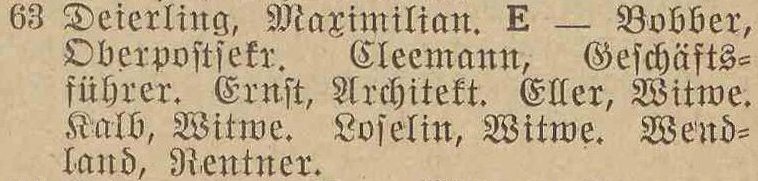 63 Deierling, Maximilian. E — Bobber,
Oberpostsekr. Cleemann, Geschäfts-
führer. Ernst, Architekt. Eller, Witwe.
Kalb, Witwe. Loselin, Witwe. Wend-
land, Rentner.